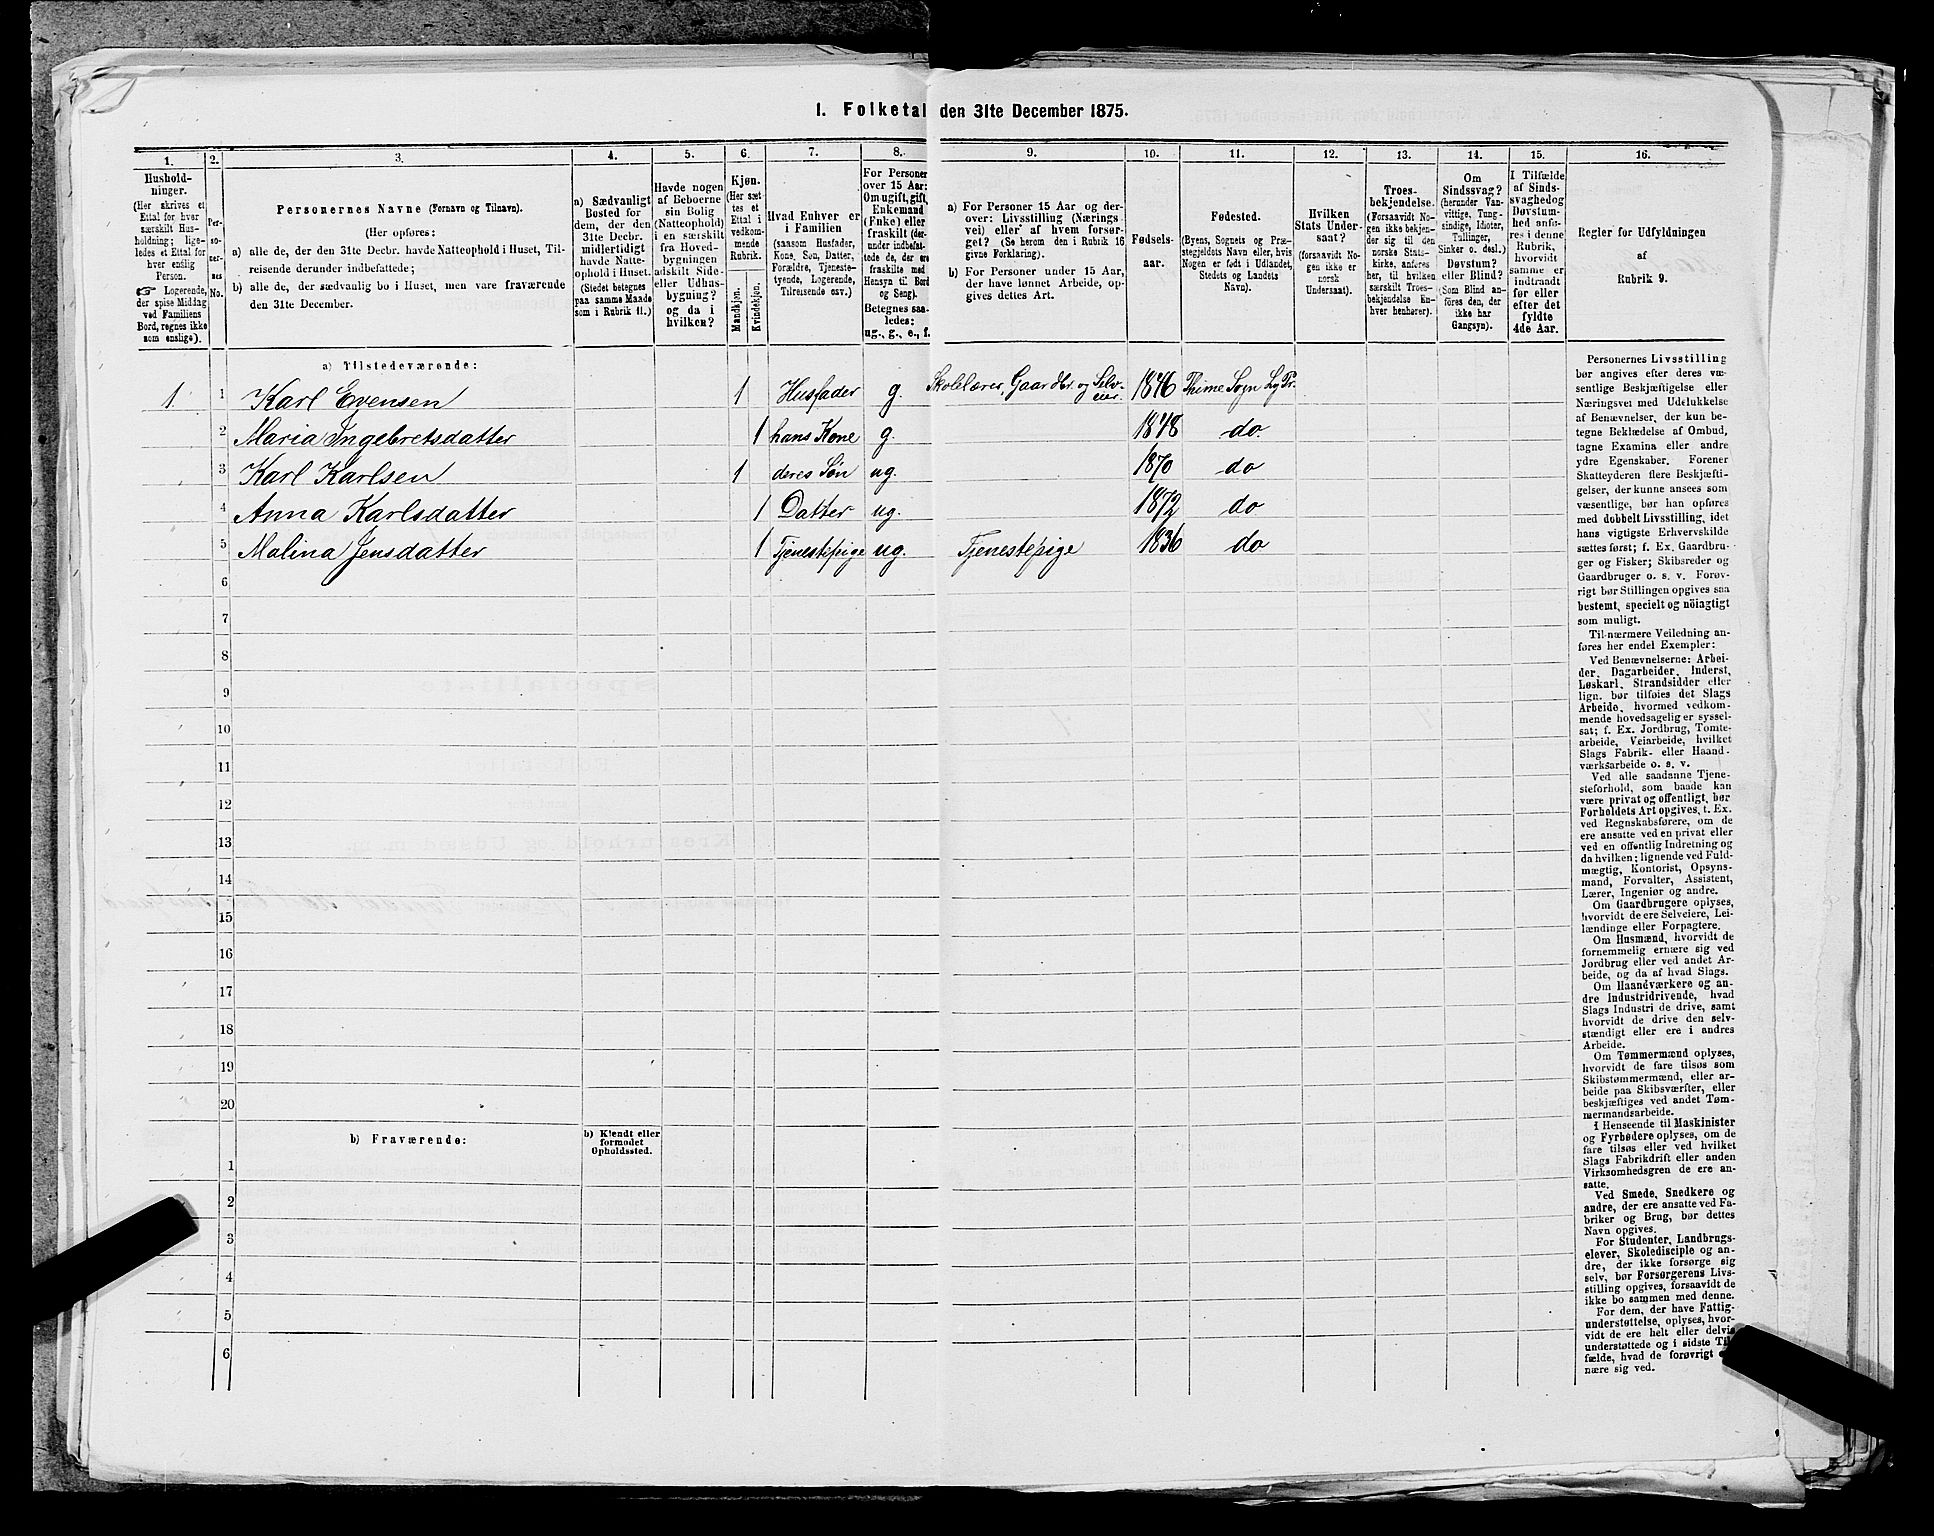 I. Folketal den 31te December 1875.
1. 2. 3. 4. 5. 6. 7. 8. 9. 10. 11. 12. 13. 14. 15. 16.
Hushold-
ninger.
(Her skrives et
Ettal for hver
særskilt Hus-
holdning; lige-
ledes et Ettal for
hver enslig
Person.
☞ Logerende,
der spise Middag
ved Familiens
Bord, regnes ikke
som enslige).
Per-
so-
ner-
nes
No.
Personernes Navne (Fornavn og Tilnavn).
(Her opføres:
a) alle de, der den 31te Decbr. havde Natteophold i Huset, Til-
reisende derunder indbefattede;
b) alle de, der sædvanlig bo i Huset, men vare fraværende
den 31te December.
a) Sædvanligt
Bosted for
dem, der den
31te Decbr.
midlertidigt
havde Natte-
ophold i Huset.
(Stedet betegnes
paa samme Maade
som i Rubrik 11.)
Havde nogen
af Beboerne
sin Bolig
(Natteophold)
i en særskilt
fra Hoved-
bygningen
adskilt Side-
eller Udhus-
bygning?
og da i
hvilken?
Kjøn.
(Her sæt-
tes et
Ettal i
vedkom-
mende
Rubrik.
Mandkjøn.
Kvindekjøn.
Hvad Enhver er
i Familien
(saasom Husfader,
Kone, Søn, Datter,
Forældre, Tjeneste-
tyende, Logerende,
Tilreisende osv.)
For Personer
over 15 Aar:
Om ugift, gift,
Enkemand
(Enke) eller
fraskilt (der-
under indbefat-
tede de, der ere
fraskilte med
Hensyn til Bord
og Seng).
Betegnes saa-
ledes:
ug., g., e., f.
a) For Personer 15 Aar og der-
over: Livsstilling (Nærings-
vei) eller af hvem forsør-
get? (Se herom den i Rubrik 16
givne Forklaring).
b) For Personer under 15 Aar,
der have lønnet Arbeide, op-
gives dettes Art.
Fødsels-
aar.
Fødested.
(Byens, Sognets og Præ-
stegjeldets Navn eller, hvis
Nogen er født i Udlandet,
Stedets og Landets
Navn).
Hvilken
Stats Under-
saat?
(forsaavidt No-
gen ikke er
norsk
Undersaat).
Troes-
bekjendelse.
(Forsaavidt No-
gen ikke bekjen-
der sig til den
norske Stats-
kirke, anføres
her, til hvilken
særskilt Troes-
bekjendelse En-
hver henhører).
Om
Sindssvag?
(herunder Van-
vittige, Tung-
sindige, Idioter,
Tullinger,
Sinker o. desl.)
Døvstum?
eller Blind?
(Som Blind an-
føres den, der
ikke har
Gangsyn).
I Tilfælde
af Sinds-
svaghed og
Døvstum-
hed anfø-
res i denne
Rubrik,
hvorvidt
samme er
indtraadt
før eller
efter det
fyldte
4de Aar.
Regler for Udfyldningen
af
Rubrik 9.
a) Tilstedeværende:
1 1 Karl Evensen 1 Husfader g. Skolelærer, Gaardbr. og Selv-
eier. 1846 Thime Sogn Ly Pr.
2 Maria Ingebretsdatter 1 hans Kone g. 1848 do.
3 Karl Karlsen 1 deres Søn ug. 1870 do
4 Anna Karlsdatter 1 Datter ug. 1872 do
5 Malina Jensdatter 1 Tjenestepige ug. Tjenestepige 1836 do
6
7
8
9
10
11
12
13
14
15
16
17
18
19
20
b) Fraværende:
b) Kjendt eller
formodet
Opholdssted.
1
2
3
4
5
6
Personernes Livsstilling
bør angives efter deres væ-
sentlige Beskjæftigelse eller
Næringsvei med Udelukkelse
af Benævnelser, der kun be-
tegne Beklædelse af Ombud,
tagne Examina eller andre
ydre Egenskaber. Forener
Skatteyderen flere Beskjæfti-
gelser, der kunne ansees som
væsentlige, bør han opføres
med dobbelt Livsstilling, idet
hans vigtigste Erhvervskilde
sættes først; f. Ex. Gaardbru-
ger og Fisker; Skibsreder og
Gaardbruger o. s. v. Forøv-
rigt bør Stillingen opgives saa
bestemt, specielt og nöiagtigt
som muligt.
Til nærmere Veiledning an-
føres her endel Exempler:
Ved Benævnelserne: Arbei-
der, Dagarbeider, Inderst,
Løskarl, Strandsidder eller
lign. bør tilføies det Slags
Arbeide, hvormed vedkom-
mende hovedsagelig er syssel-
sat; f. Ex. Jordbrug, Tomte-
arbeide, Veiarbeide, hvilket
Slags Fabrik- eller Haand-
værksarbeide o. s. v.
Ved alle saadanne Tjene-
steforhold, som baade kan
være privat og offentligt, bør
Forholdets Art opgives, t. Ex.
ved Regnskabsførere, om de
ere ansatte ved en privat eller
ved en offentlig Indretning og
da hvilken; lignende ved Fuld-
mægtig, Kontorist, Opsyns-
mand, Forvalter, Assistent,
Lærer, Ingeniør og andre.
Om Gaardbrugere oplyses,
hvorvidt de ere Selveiere, Lei-
lændinge eller Forpagtere.
Om Husmænd, hvorvidt de
fornemmelig ernære sig ved
Jordbrug eller ved andet Ar-
beide, og da af hvad Slags.
Om Haandværkere og an-
dre Industridrivende, hvad
Slags Industri de drive, samt
hvorvidt de drive den selv-
stændigt eller ere i andres
Arbeide.
Om Tømmermænd oplyses,
hvorvidt de fare tilsøs som
Skibstømmermænd, eller ar-
beide paa Skibsværfter, eller
beskjæftiges ved andet Tøm-
mermandsarbeide.
I Henseende til Maskinister
og Fyrbødere oplyses, om de
fare tilsøs eller ved hvilket
Slags Fabrikdrift eller anden
Virksomhedsgren de ere an-
satte.
Ved Smede, Snedkere og
andre, der ere ansatte ved Fa-
briker og Brug, bør dettes
Navn opgives.
For Studenter, Landbrugs-
elever, Skoledisciple og an-
dre, der ikke forsørge sig
selv, bør Forsørgerens Livs-
stilling opgives, forsaavidt de
ikke bo sammen med denne.
For dem, der have Fattig-
understøttelse, oplyses, hvor-
vidt de ere helt eller delvis
understøttede og i sidste Til-
fælde, hvad de forøvrigt er-
nære sig ved.